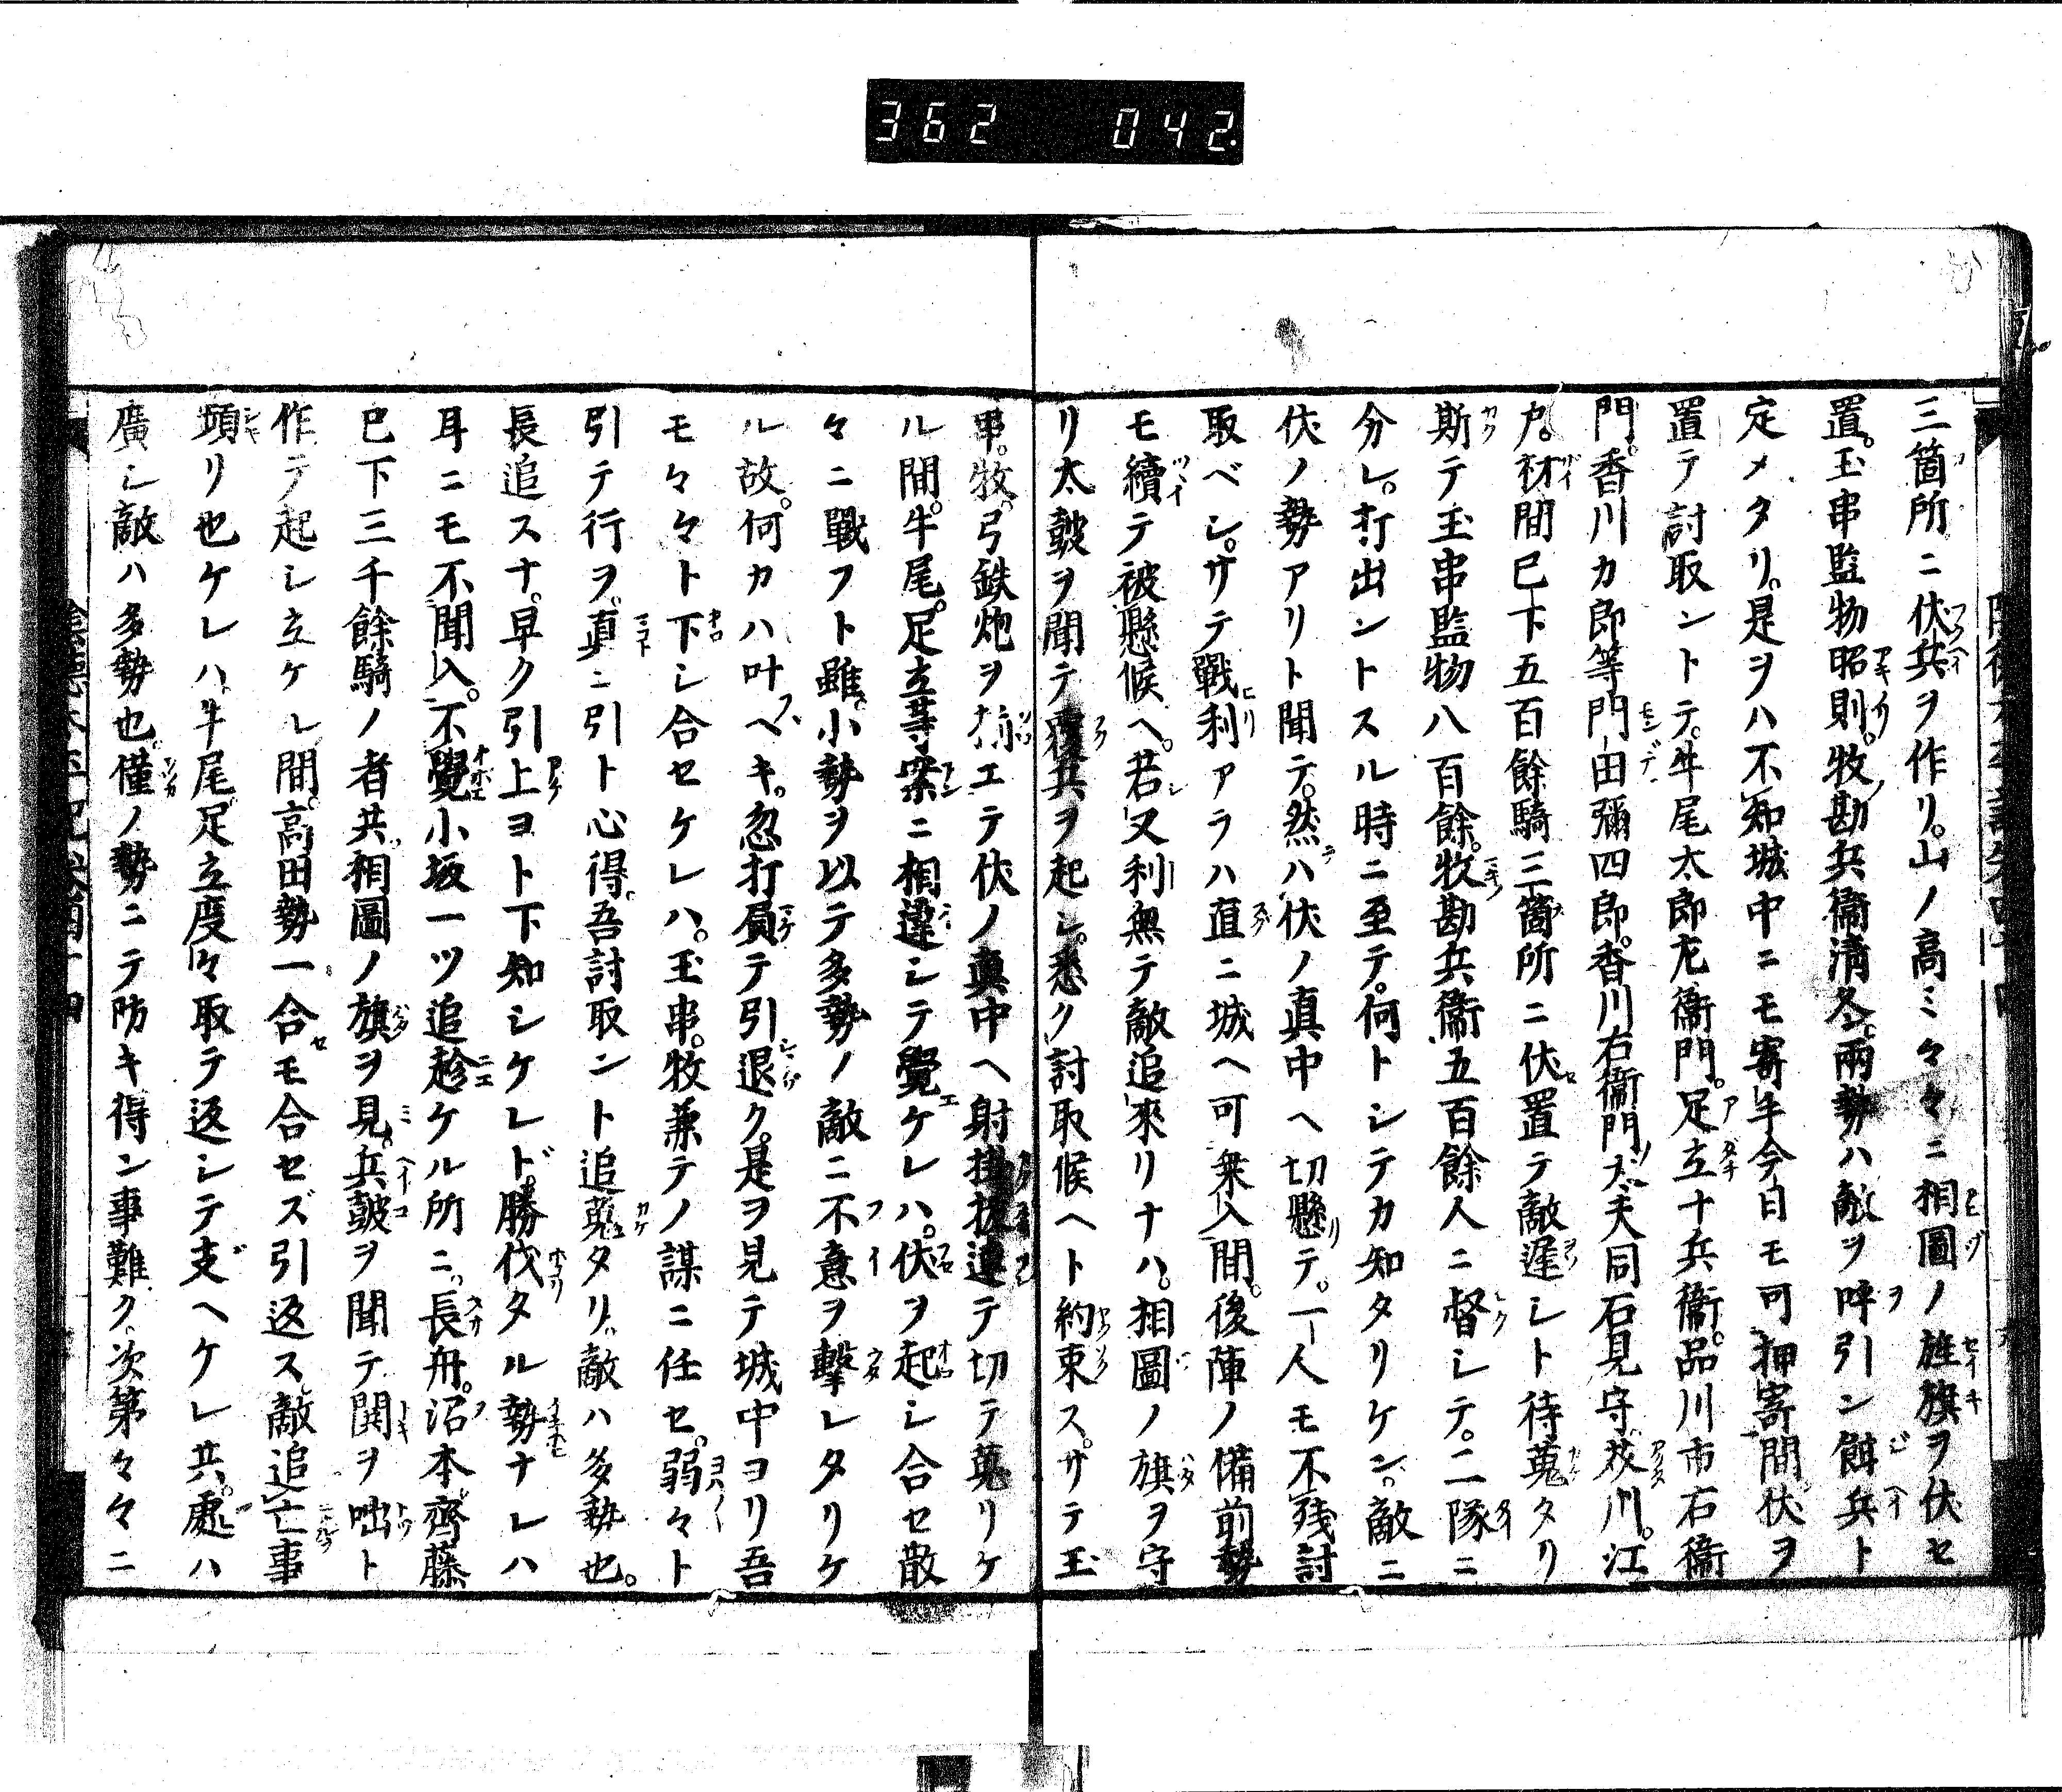 362 042
三箇所ニ伏兵ヲ作リ。山ノ高ミ々々ニ相圖ノ旌旗ヲ伏セ
置。玉串監物昭則。牧勘兵衞淸冬。兩勢ハ敵ヲ呼引ン餌兵ト
定メタリ。是ヲハ不知城中ニモ寄手今日モ可押寄間。伏ヲ
置テ討取ントテ。牛尾太郎左衞門。足立十兵衞。品川市右衞
門。香川カ郎等門田彌四郎。香川右衞門大夫同石見守。茂川。江
戸。材間已下五百餘騎三箇所ニ伏置テ敵遲シト待蒐タリ
斯テ玉串監物八百餘。牧勘兵衞五百餘人ニ督シテ。二隊ニ
分レ。打出ントスル時ニ至テ。何トシテカ知タリケン。敵ニ
伏ノ勢アリト聞テ。然ハ伏ノ真中ヘ切懸テ。一人モ不殘討
取ベシ。サテ戰利アラハ直ニ城ヘ可乘入間。後陣ノ備前勢
モ續テ被懸候ヘ。若又利無テ敵追來リナハ。相圖ノ旗ヲ守
リ太皷ヲ聞テ覆兵ヲ起シ。悉ク討取候ヘト約束ス。サテ玉
串。牧。弓鉄炮ヲ揃エテ伏ノ真中ヘ射掛拔連テ切テ蒐リケ
ル間。牛尾。足立等案ニ相違シテ覺ケレハ。伏ヲ起シ合セ散
々ニ戰フト雖。小勢ヲ以テ多勢ノ敵ニ不意ヲ擊レタリケ
ル故。何カハ叶ヘキ。忽打屓テ引退ク。是ヲ見テ城中ヨリ吾
モ々々ト下シ合セケレハ。玉串。牧兼テノ謀ニ任セ。弱々ト
引テ行ヲ。真ニ引ト心得。吾討取ント追蒐タリ。敵ハ多勢也。
長追スナ。早ク引上ヨト下知シケレド。勝伐タル勢ナレハ
耳ニモ不聞入。不覺小坂一ツ追趁ケル所ニ。長舟。沼本。齊藤
已下三千餘騎ノ者共。相圖ノ旗ヲ見。兵皷ヲ聞テ鬨ヲ咄ト
作テ起シ立ケレ間。高田勢一合モ合セズ引返ス。敵追亡事
頻リ也ケレハ。牛尾足立度々取テ返シテ支ヘケレ共。處ハ
廣シ敵ハ多勢也。僅ノ勢ニテ防キ得ン事難ク。次第々々ニ